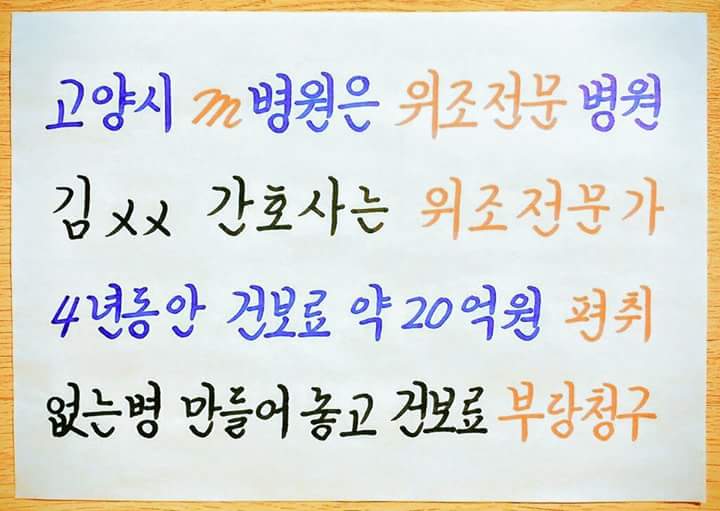 고양시 m병원은 위조전문 병원
김xx 간호사는 위조전문가
4년동안 건보료 약 20억원 편취
없는병 만들어 놓고 건보료 부당청구